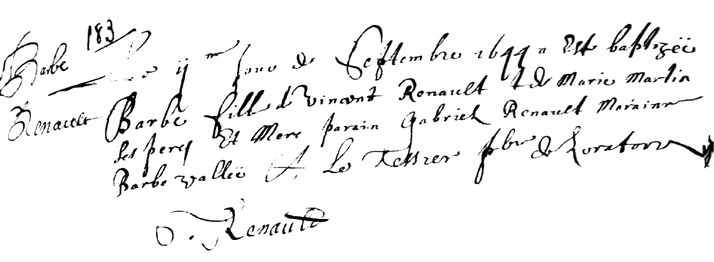 183
Barbe
Renault
Le ii me Jour de Septembre 1644 a Est baptizéé
Barbe fille d Vincent Renault & de Marie Martin
ses pere Et Mere parain Gabriel Renault Maraine
Barbe valléé A. Le Tessier pbre de Loratoire
Renault